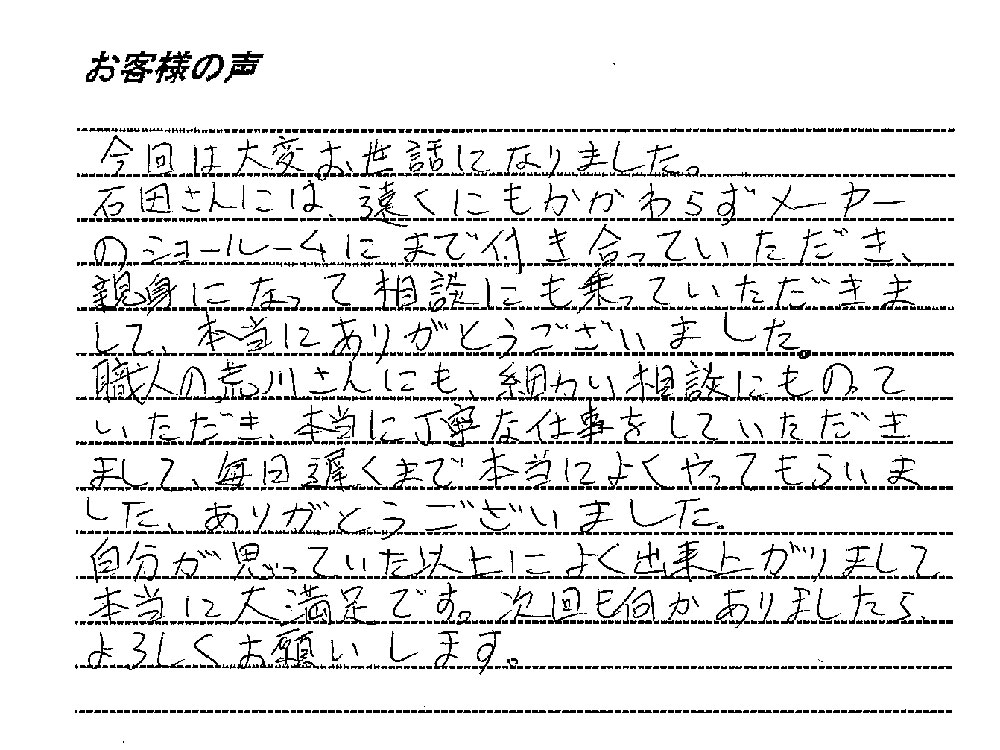 お客様の声
今回は大変お世話になりました。
石田さんには、遠くにもかかわらずメーカー
のショールームにまで付き合っていただき、
親身になって相談にも乗っていただきま
して、本当にありがとうございました。
職人の荒川さんにも、細かい相談にものって
いただき、本当に丁寧な仕事をしていただき
まして、毎日遅くまで本当によくやってもらいま
した、ありがとうございました。
自分が思っていた以上によく出来上がりまして
本当に大満足です。次回も何かありましたら、
よろしくお願いします。